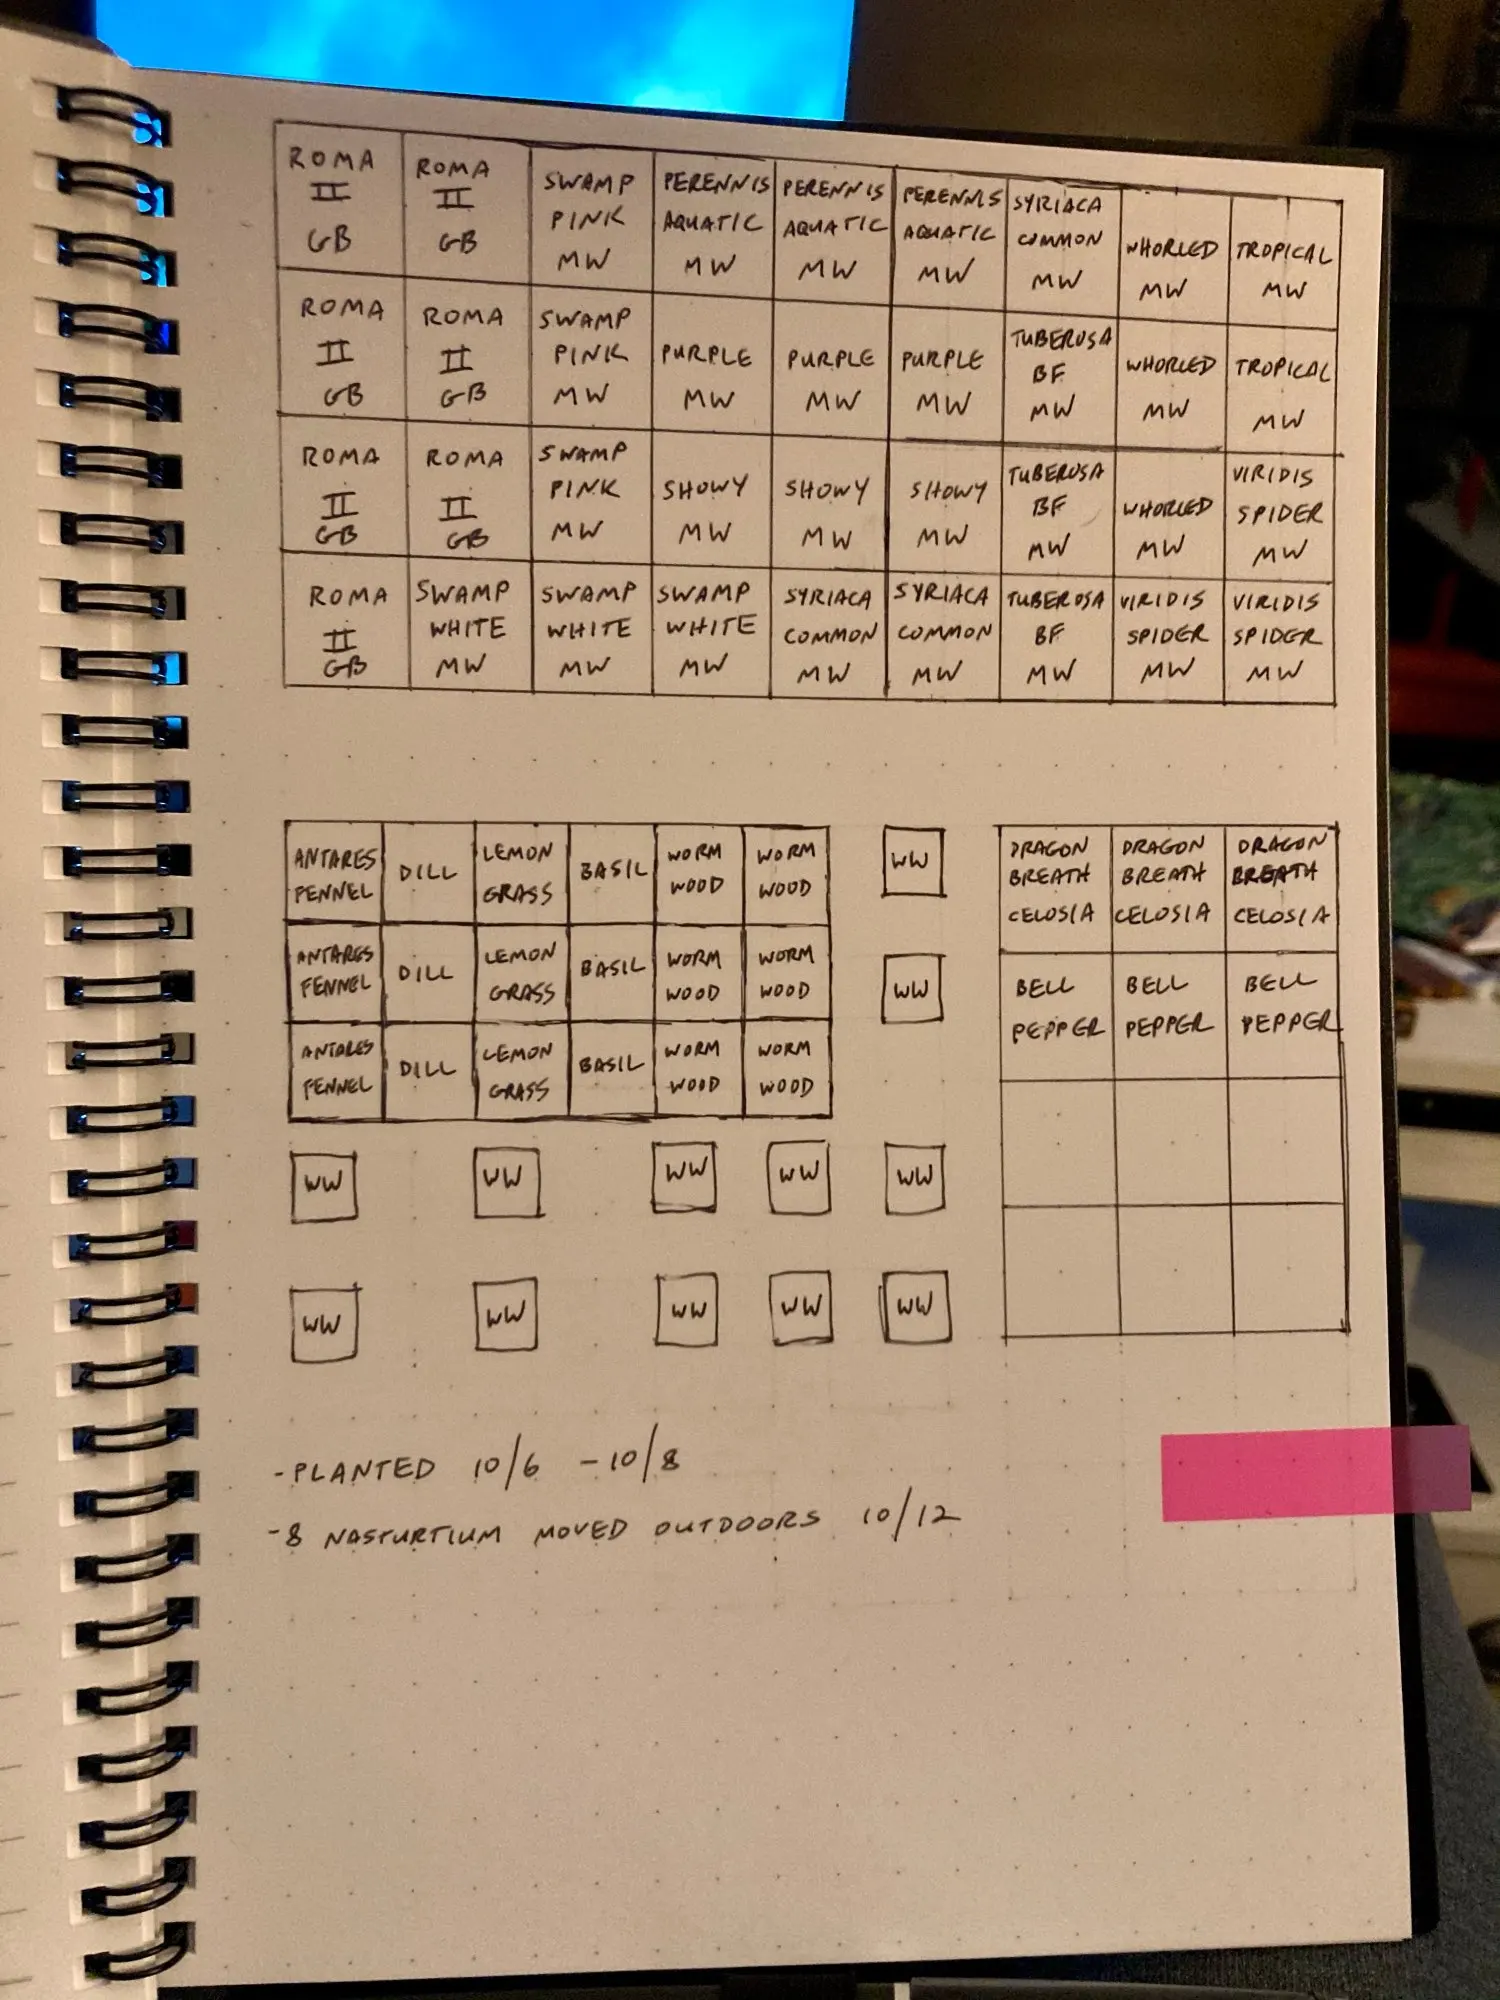 ROMA II GB ROMA II GB SWAMP PINK MW PERENNIS AQUATIC MW PERENNIS AQUATIC MW PERENNIS AQUATIC MW SYRIACA COMMON MW WHORLED MW TROPICAL MW
ROMA II GB ROMA II GB SWAMP PINK MW PURPLE MW PURPLE MW PURPLE MW TUBEROSA BF MW WHORLED MW TROPICAL MW
ROMA II GB ROMA II GB SWAMP PINK MW SHOWY MW SHOWY MW SHOWY MW TUBEROSA BF MW WHORLED MW VIRIDIS SPIDER MW
ROMA II GB SWAMP WHITE MW SWAMP WHITE MW SWAMP WHITE MW SYRIACA COMMON MW SYRIACA COMMON MW TUBEROSA BF MW VIRIDIS SPIDER MW VIRIDIS SPIDER MW
ANTARES FENNEL DILL LEMON GRASS BASIL WORM WOOD WORM WOOD WW DRAGON BREATH CELOSIA DRAGON BREATH CELOSIA DRAGON BREATH CELOSIA
ANTARES FENNEL DILL LEMON GRASS BASIL WORM WOOD WORM WOOD WW BELL PEPPER BELL PEPPER BELL PEPPER
ANTARES FENNEL DILL LEMON GRASS BASIL WORM WOOD WORM WOOD
WW WW WW WW WW
WW WW WW WW WW
-PLANTED 10/6 -10/8
-8 NASTURTIUM MOVED OUTDOORS 10/12